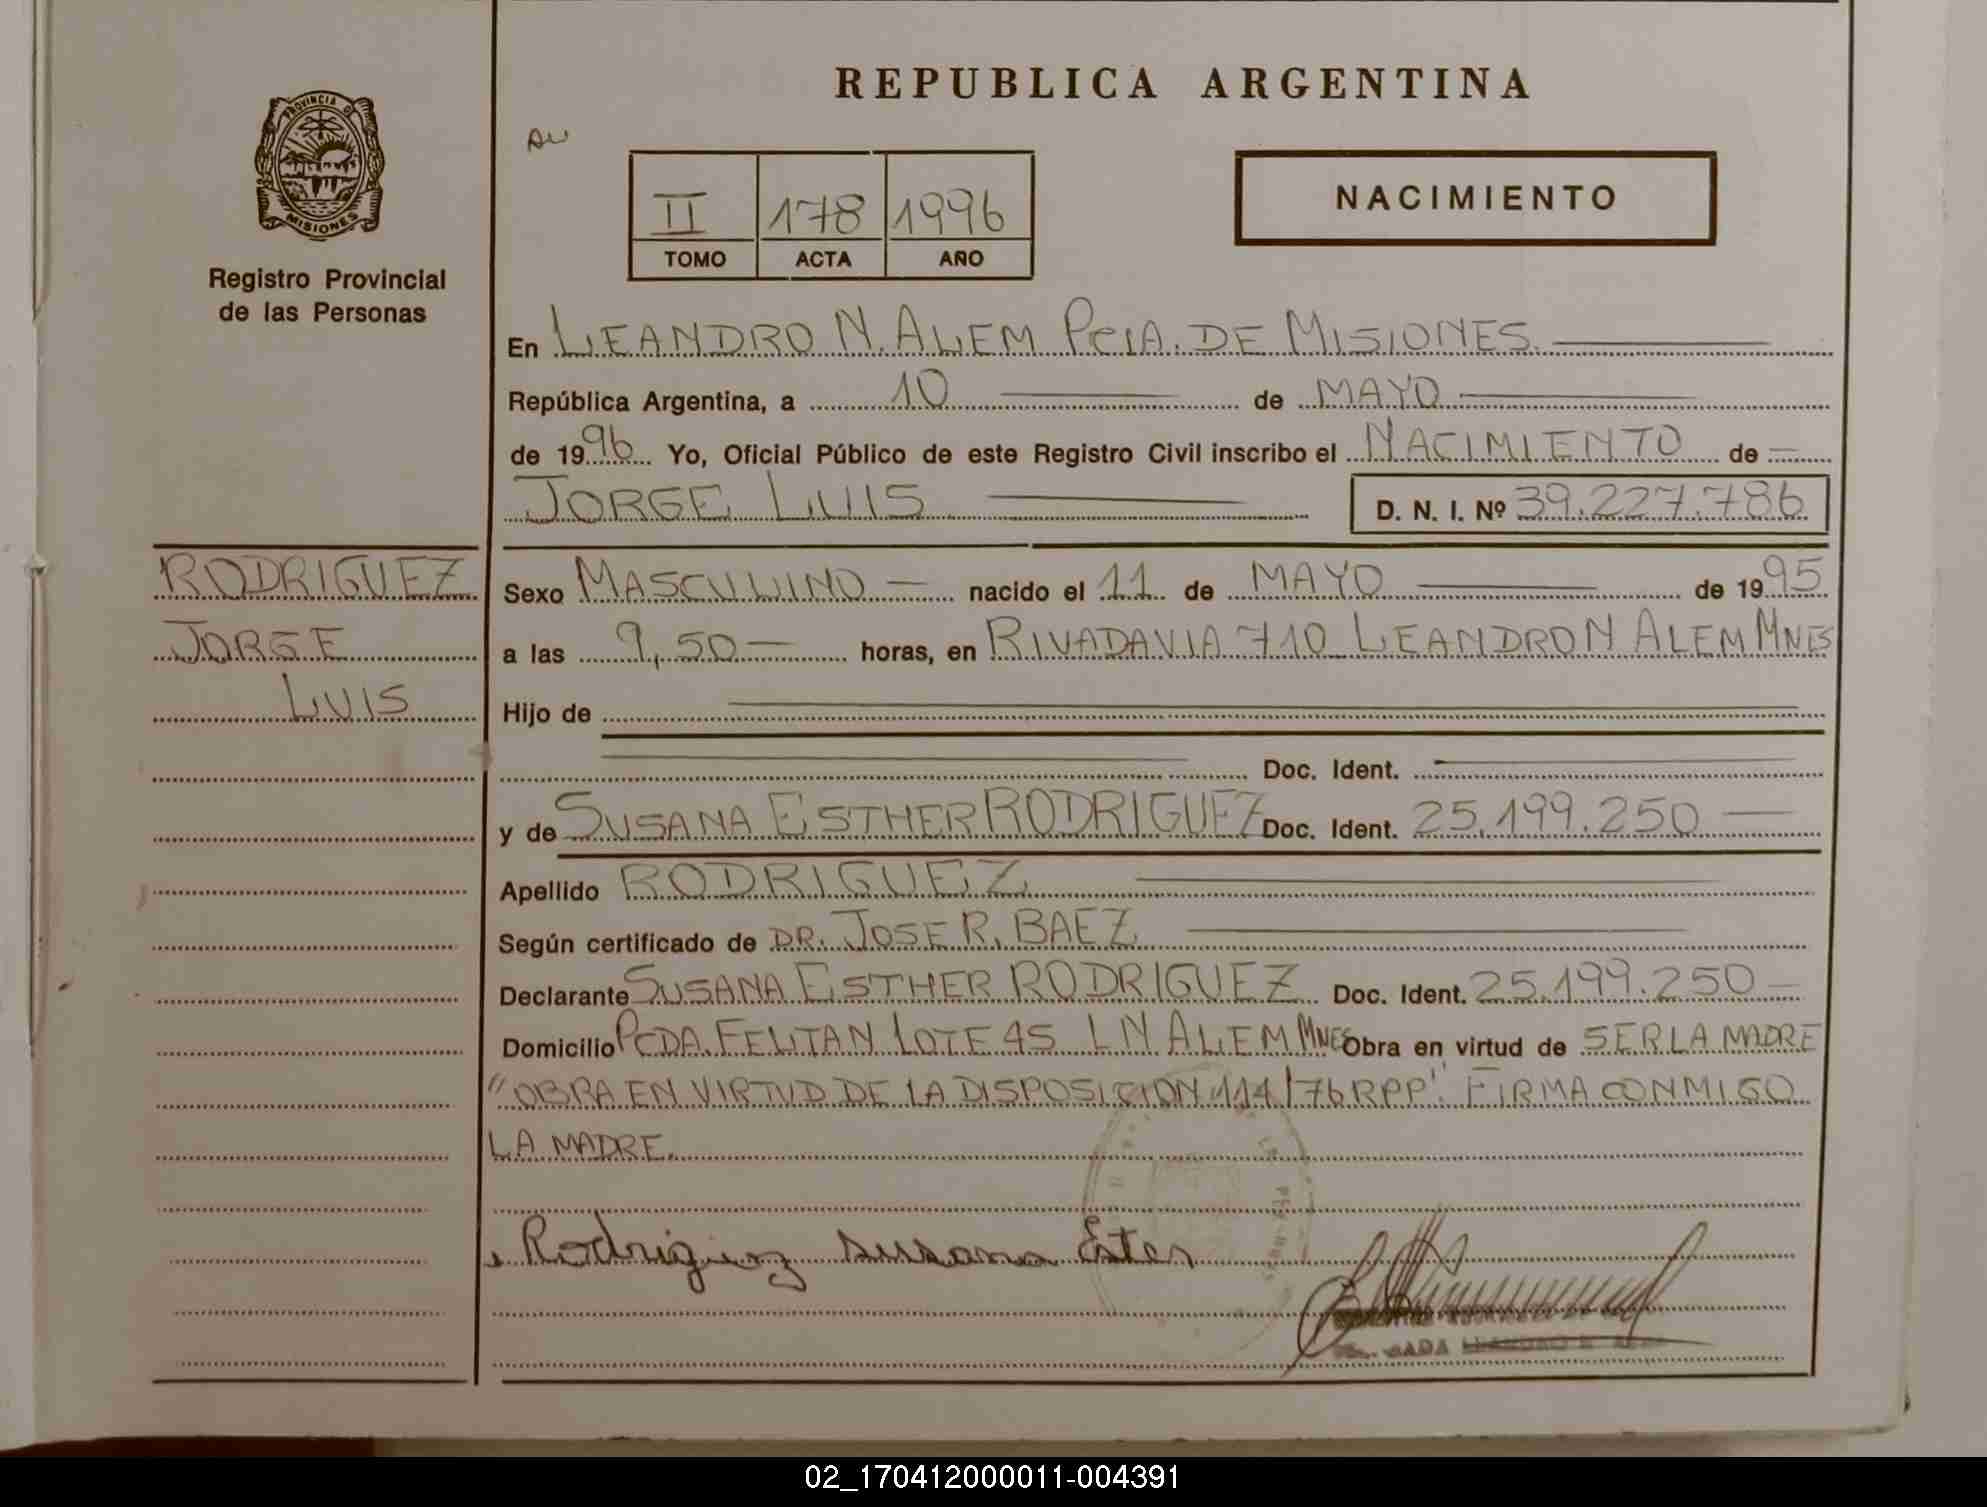 PROVINCIA D
MISIONES
Registro Provincial
de las Personas
RODRIGUEZ
JORGE
LUIS
REPUBLICA ARGENTINA
II 178 1996
TOMO ACTA AÑO
NACIMIENTO
En LEANDRO N. ALEM PCIA. DE MISIONES.
República Argentina, a 10 de MAYO
de 1996 Yo, Oficial Público de este Registro Civil inscribo el NACIMIENTO de
JORGE LUIS D. N. I. Nº 39.227.786
Sexo MASCULINO nacido el 11 de MAYO de 1995
a las 9,50 horas, en RIVADAVIA 710 LEANDRO N ALEM MNES
Hijo de
Doc. Ident.
y de SUSANA ESTHER RODRIGUEZ Doc. Ident. 25.199.250
Apellido RODRIGUEZ
Según certificado de DR. JOSE R. BAEZ
Declarante SUSANA ESTHER RODRIGUEZ Doc. Ident. 25.199.250
Domicilio PCDA. FELTAN LOTE 45 LN ALEM MNES Obra en virtud de SER LA MADRE
"OBRA EN VIRTUD DE LA DISPOSICION 114/76 RPP". FIRMA CONMIGO
LA MADRE.
Rodriguez Susana Ester
02_170412000011-004391